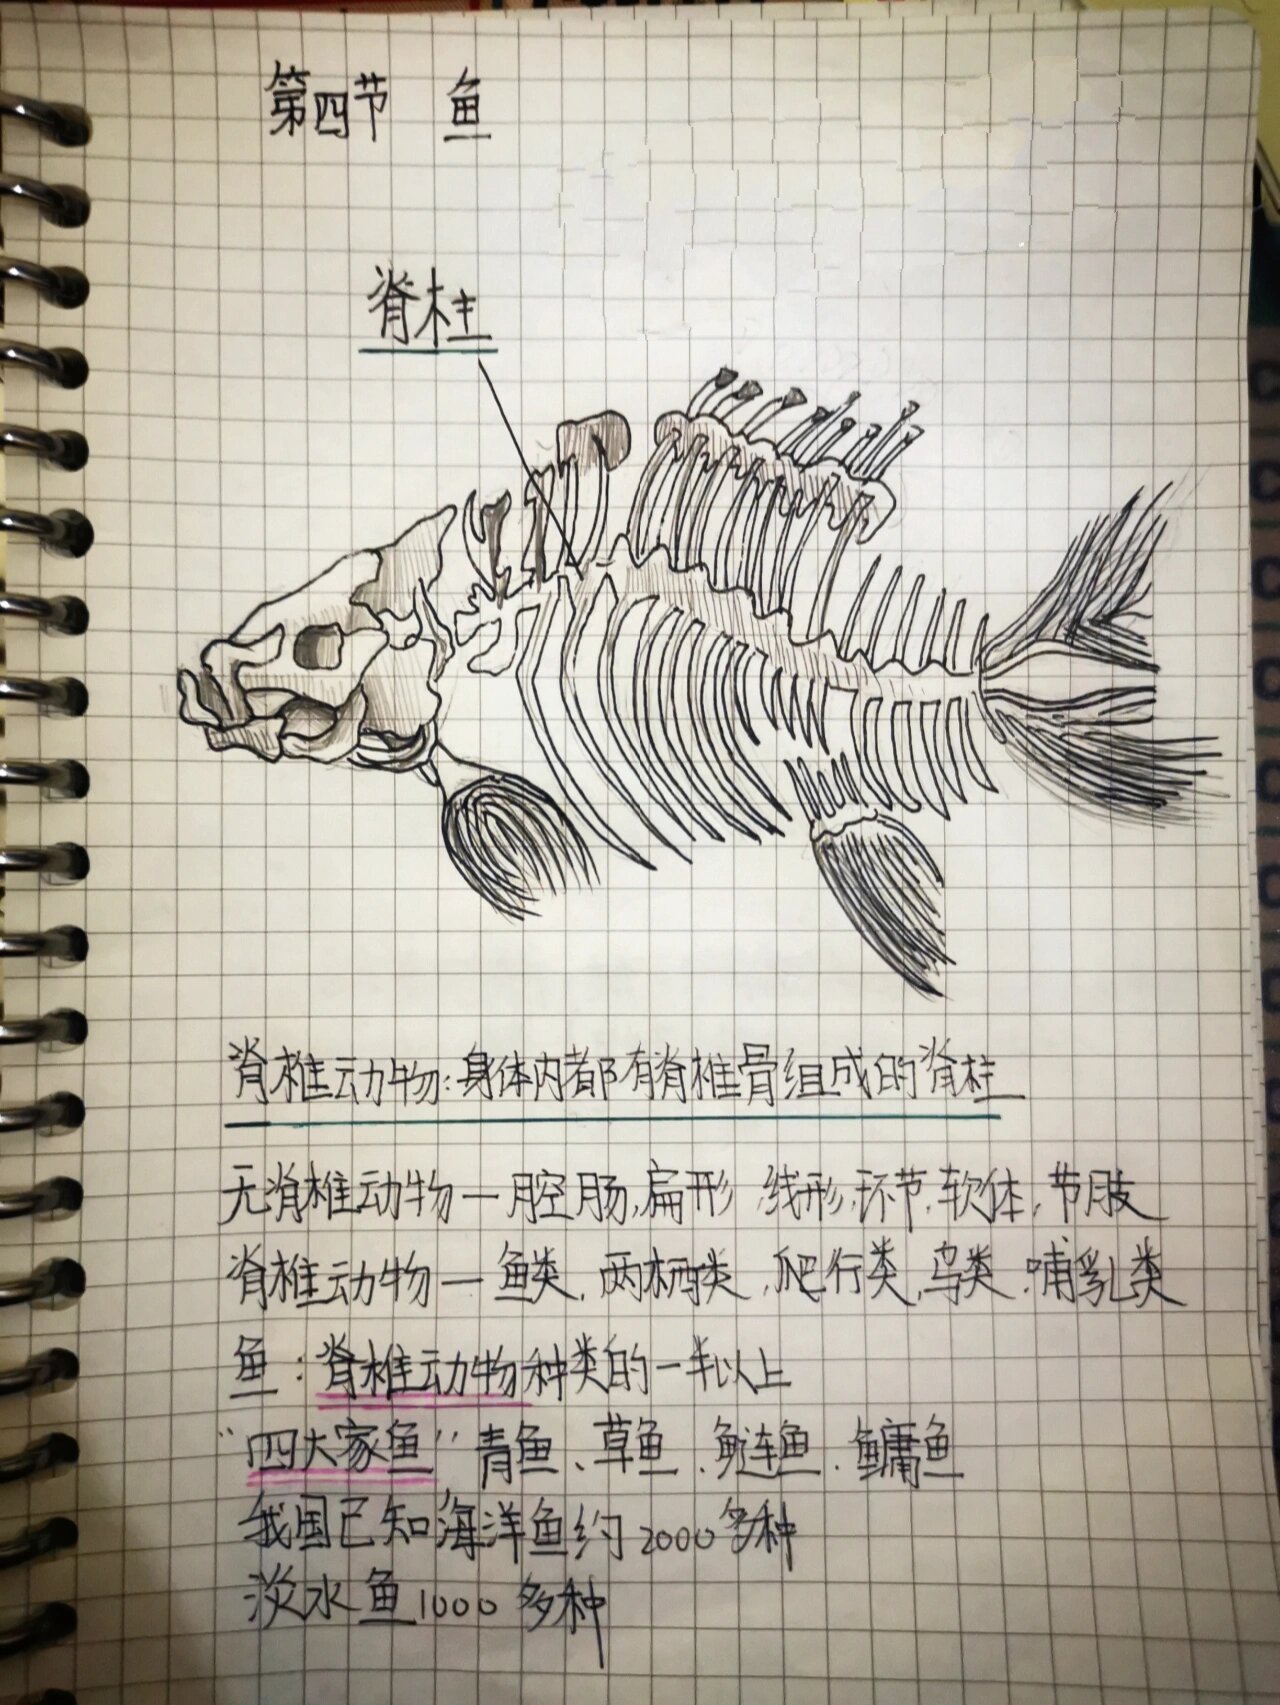 第四节 鱼
脊柱
脊椎动物:身体内都有脊椎骨组成的脊柱
无脊椎动物—腔肠,扁形,线形,环节,软体,节肢
脊椎动物—鱼类,两栖类,爬行类,鸟类,哺乳类
鱼:脊椎动物种类的一半以上
“四大家鱼”青鱼、草鱼、鲢鱼、鳙鱼
我国已知海洋鱼约2000多种
淡水鱼1000多种